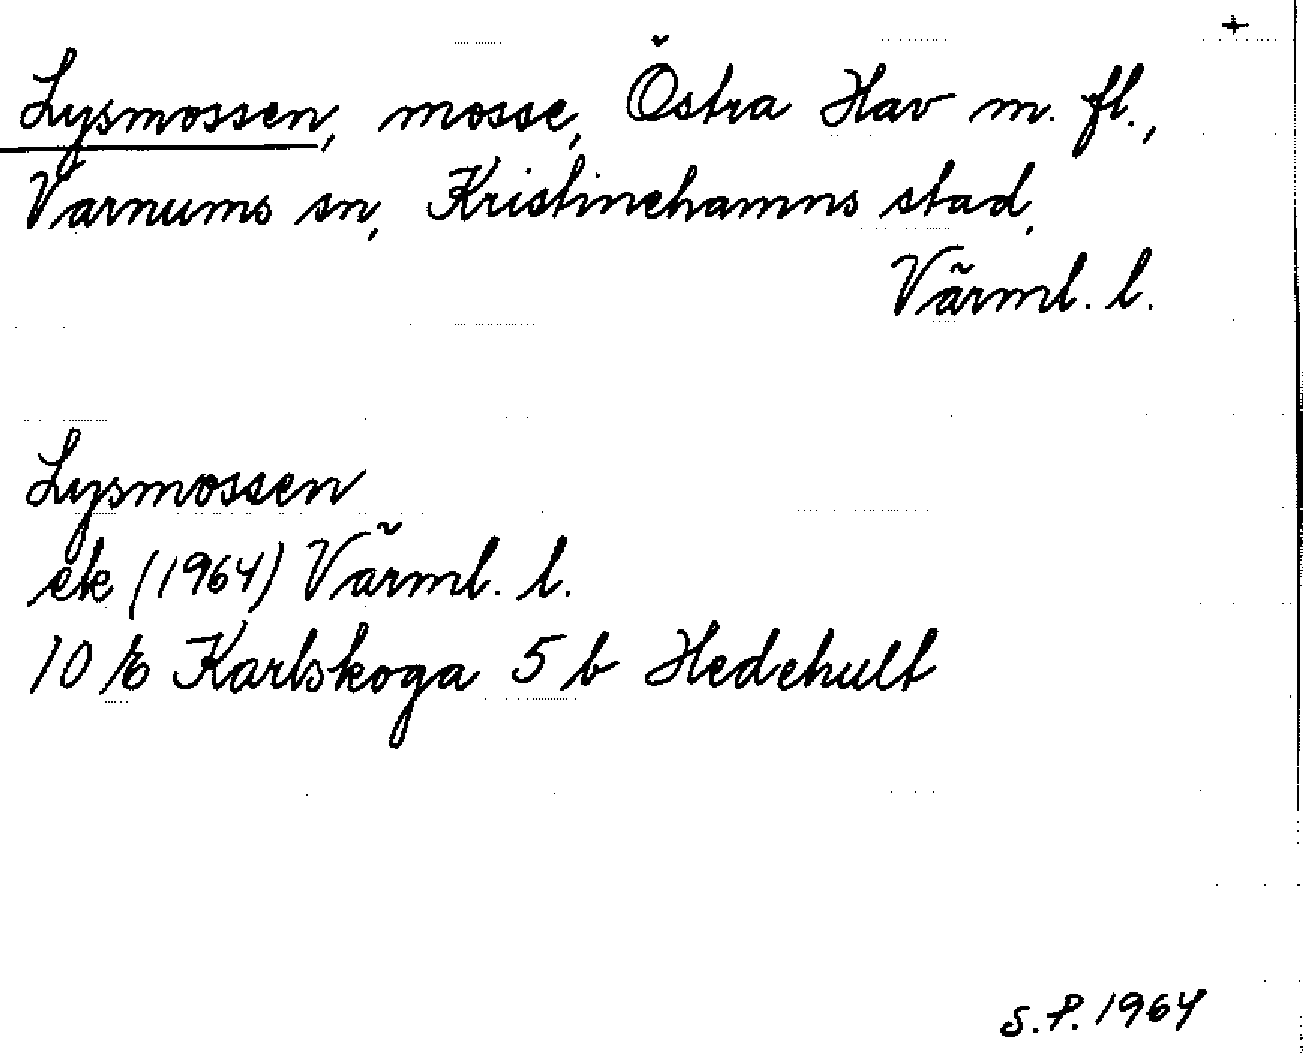 +
Lysmossen, mosse, Östra Hav m. fl.,
Varnums sn, Kristinehamns stad,
Värml. l.
Lysmossen
ek (1964) Värml. l.
10 E Karlskoga 5 b Hedehult
S.P. 1964